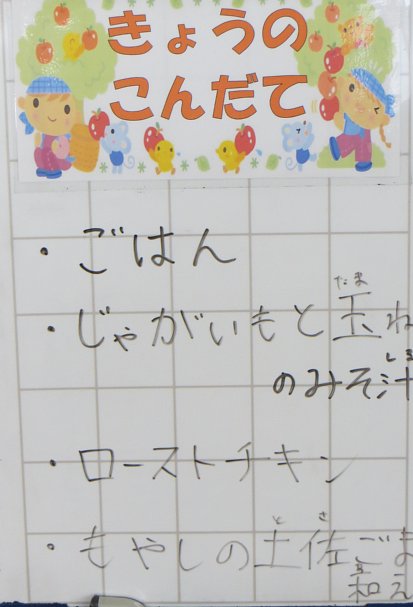 きょうの
こんだて
・ごはん
・じゃがいもと玉ね
たま
のみそ汁
しる
・ローストチキン
・もやしの土佐ごま
とさ
和え
あ